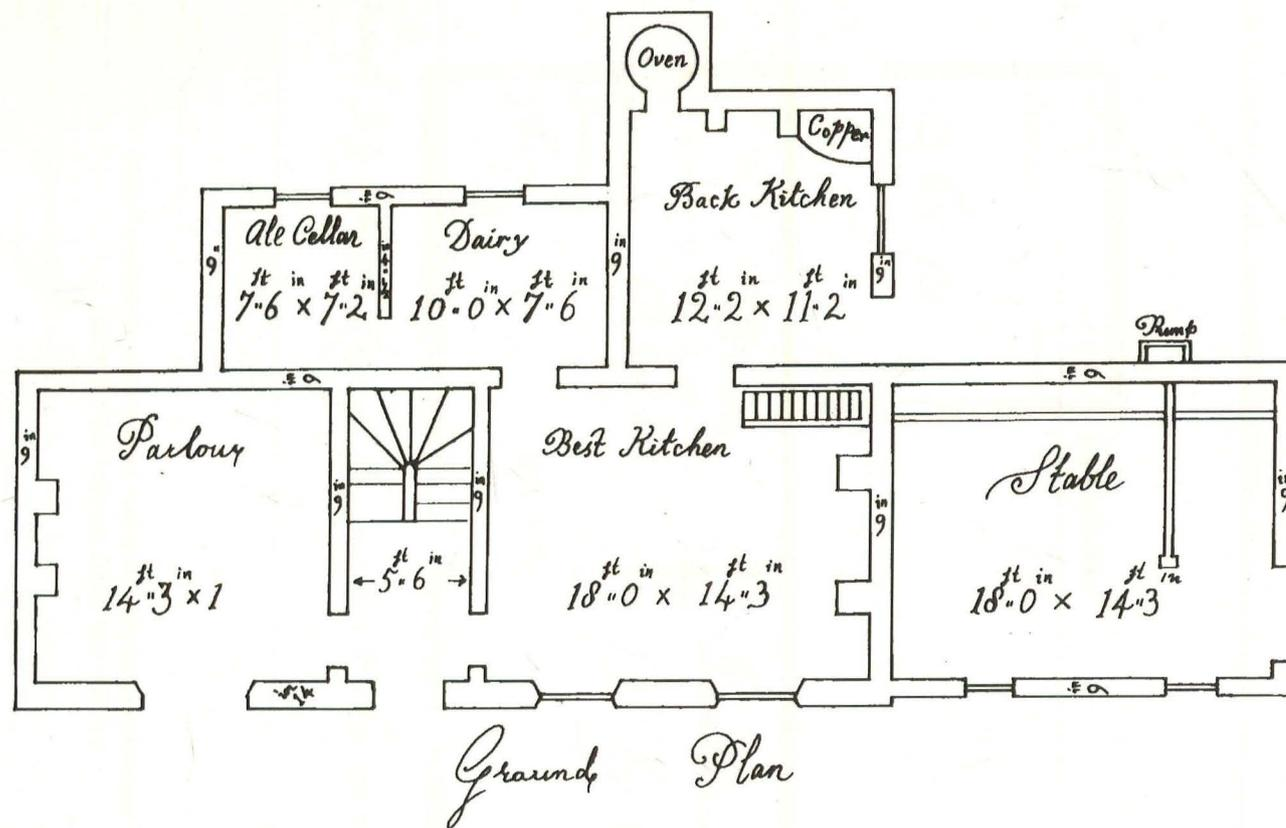 Oven
Copper
Back Kitchen
ft in ft in
12"2 x 11"2
9 in
9 in
Ale Cellar
ft in ft in
7"6 x 7"2
9"
in 4"1/2
Dairy
ft in ft in
10"0 x 7"6
in 9
in 9
Pump
9 in
9 in
Parlour
ft in
14"3 x 1
in 9
in 9
ft in
5"6
in 9
Best Kitchen
ft in ft in
18"0 x 14"3
in 9
Stable
ft in ft in
18"0 x 14"3
in 9
9 in
Ground Plan